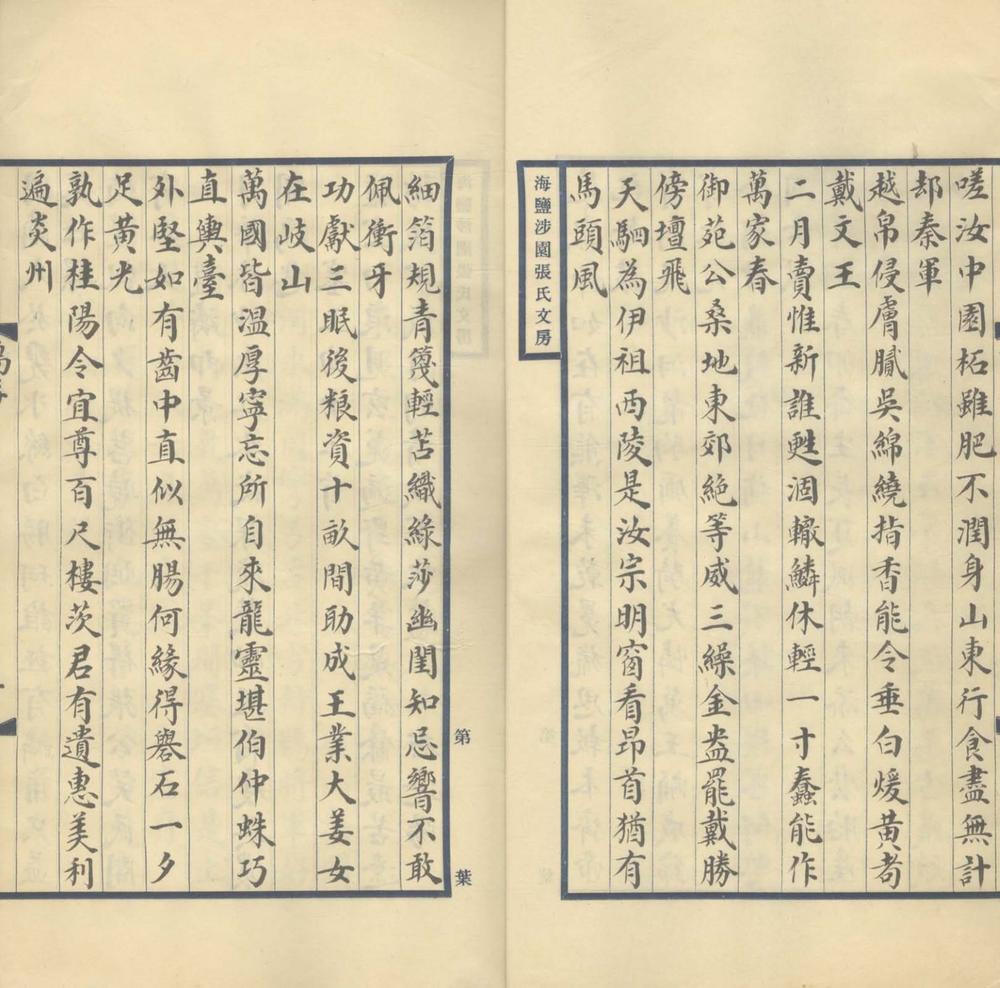 嗟汝中園柘雖肥不潤身山東行食盡無計
却秦軍
越帛侵膚膩吳綿繞指香能令垂白煖黃耇
戴文王
二月賣惟新誰甦涸轍鱗休輕一寸蠶能作
萬家春
御苑公桑地東郊絕等威三繰金盎罷戴勝
傍壇飛
天駟為伊祖西陵是汝宗明窗看昂首猶有
馬頭風
海鹽涉園張氏文房
第 葉
細箔規青篾輕苫織綠莎幽閨知忌響不敢
佩衝牙
功獻三眠後粮資十畝間助成王業大姜女
在岐山
萬國皆溫厚寧忘所自來龍靈堪伯仲蛛巧
直輿臺
外堅如有齒中直似無腸何緣得礜石一夕
足黃光
孰作桂陽令宜尊百尺樓茨君有遺惠美利
遍炎州